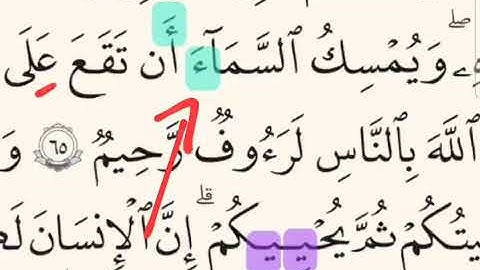 وَيُمْسِكُ ٱلسَّمَآءَ أَن تَقَعَ عَلَى
ٱللَّهَ بِٱلنَّاسِ لَرَءُوفٌ رَّحِيمٌ ٦٥ وَ
يتُكُمْ ثُمَّ يُحْيِيكُمْ ۗ إِنَّ ٱلْإِنسَانَ لَ